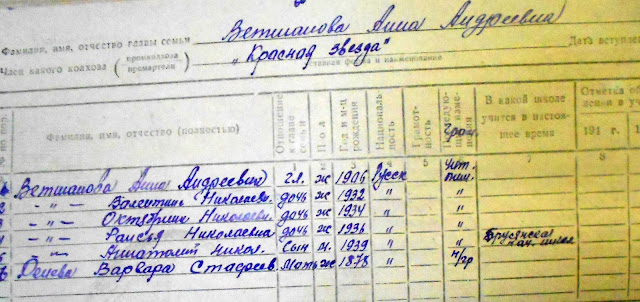 Ветшанова Анна Андреевна
Фамилия, имя, отчество главы семьи
"Красная Звезда"
Член какого колхоза (промколхоза промартели) Дата вступле
ставная форма и наименование
№ по пор. Фамилия, имя, отчество (полностью) Отношение к главе семьи Пол Год и м-ц рождения Национальность Грамотность В какой школе учится в настоящее время Отметка об 191 г.
1 2 3 4 5 7 8
Ветшанова Анна Андреевна гл. ж 1906 Русск
2 -"- Валентина Николаевн. дочь ж 1932 " "
3 -"- Октябрина Николаевн. дочь ж 1934 " "
4 -"- Раисья Николаевна дочь ж 1936 " " Брусянская нач. школа
5 -"- Анатолий Никол. Сын м. 1939 " "
6 Варвара Стафеев. Мать ж 1878 " н/гр